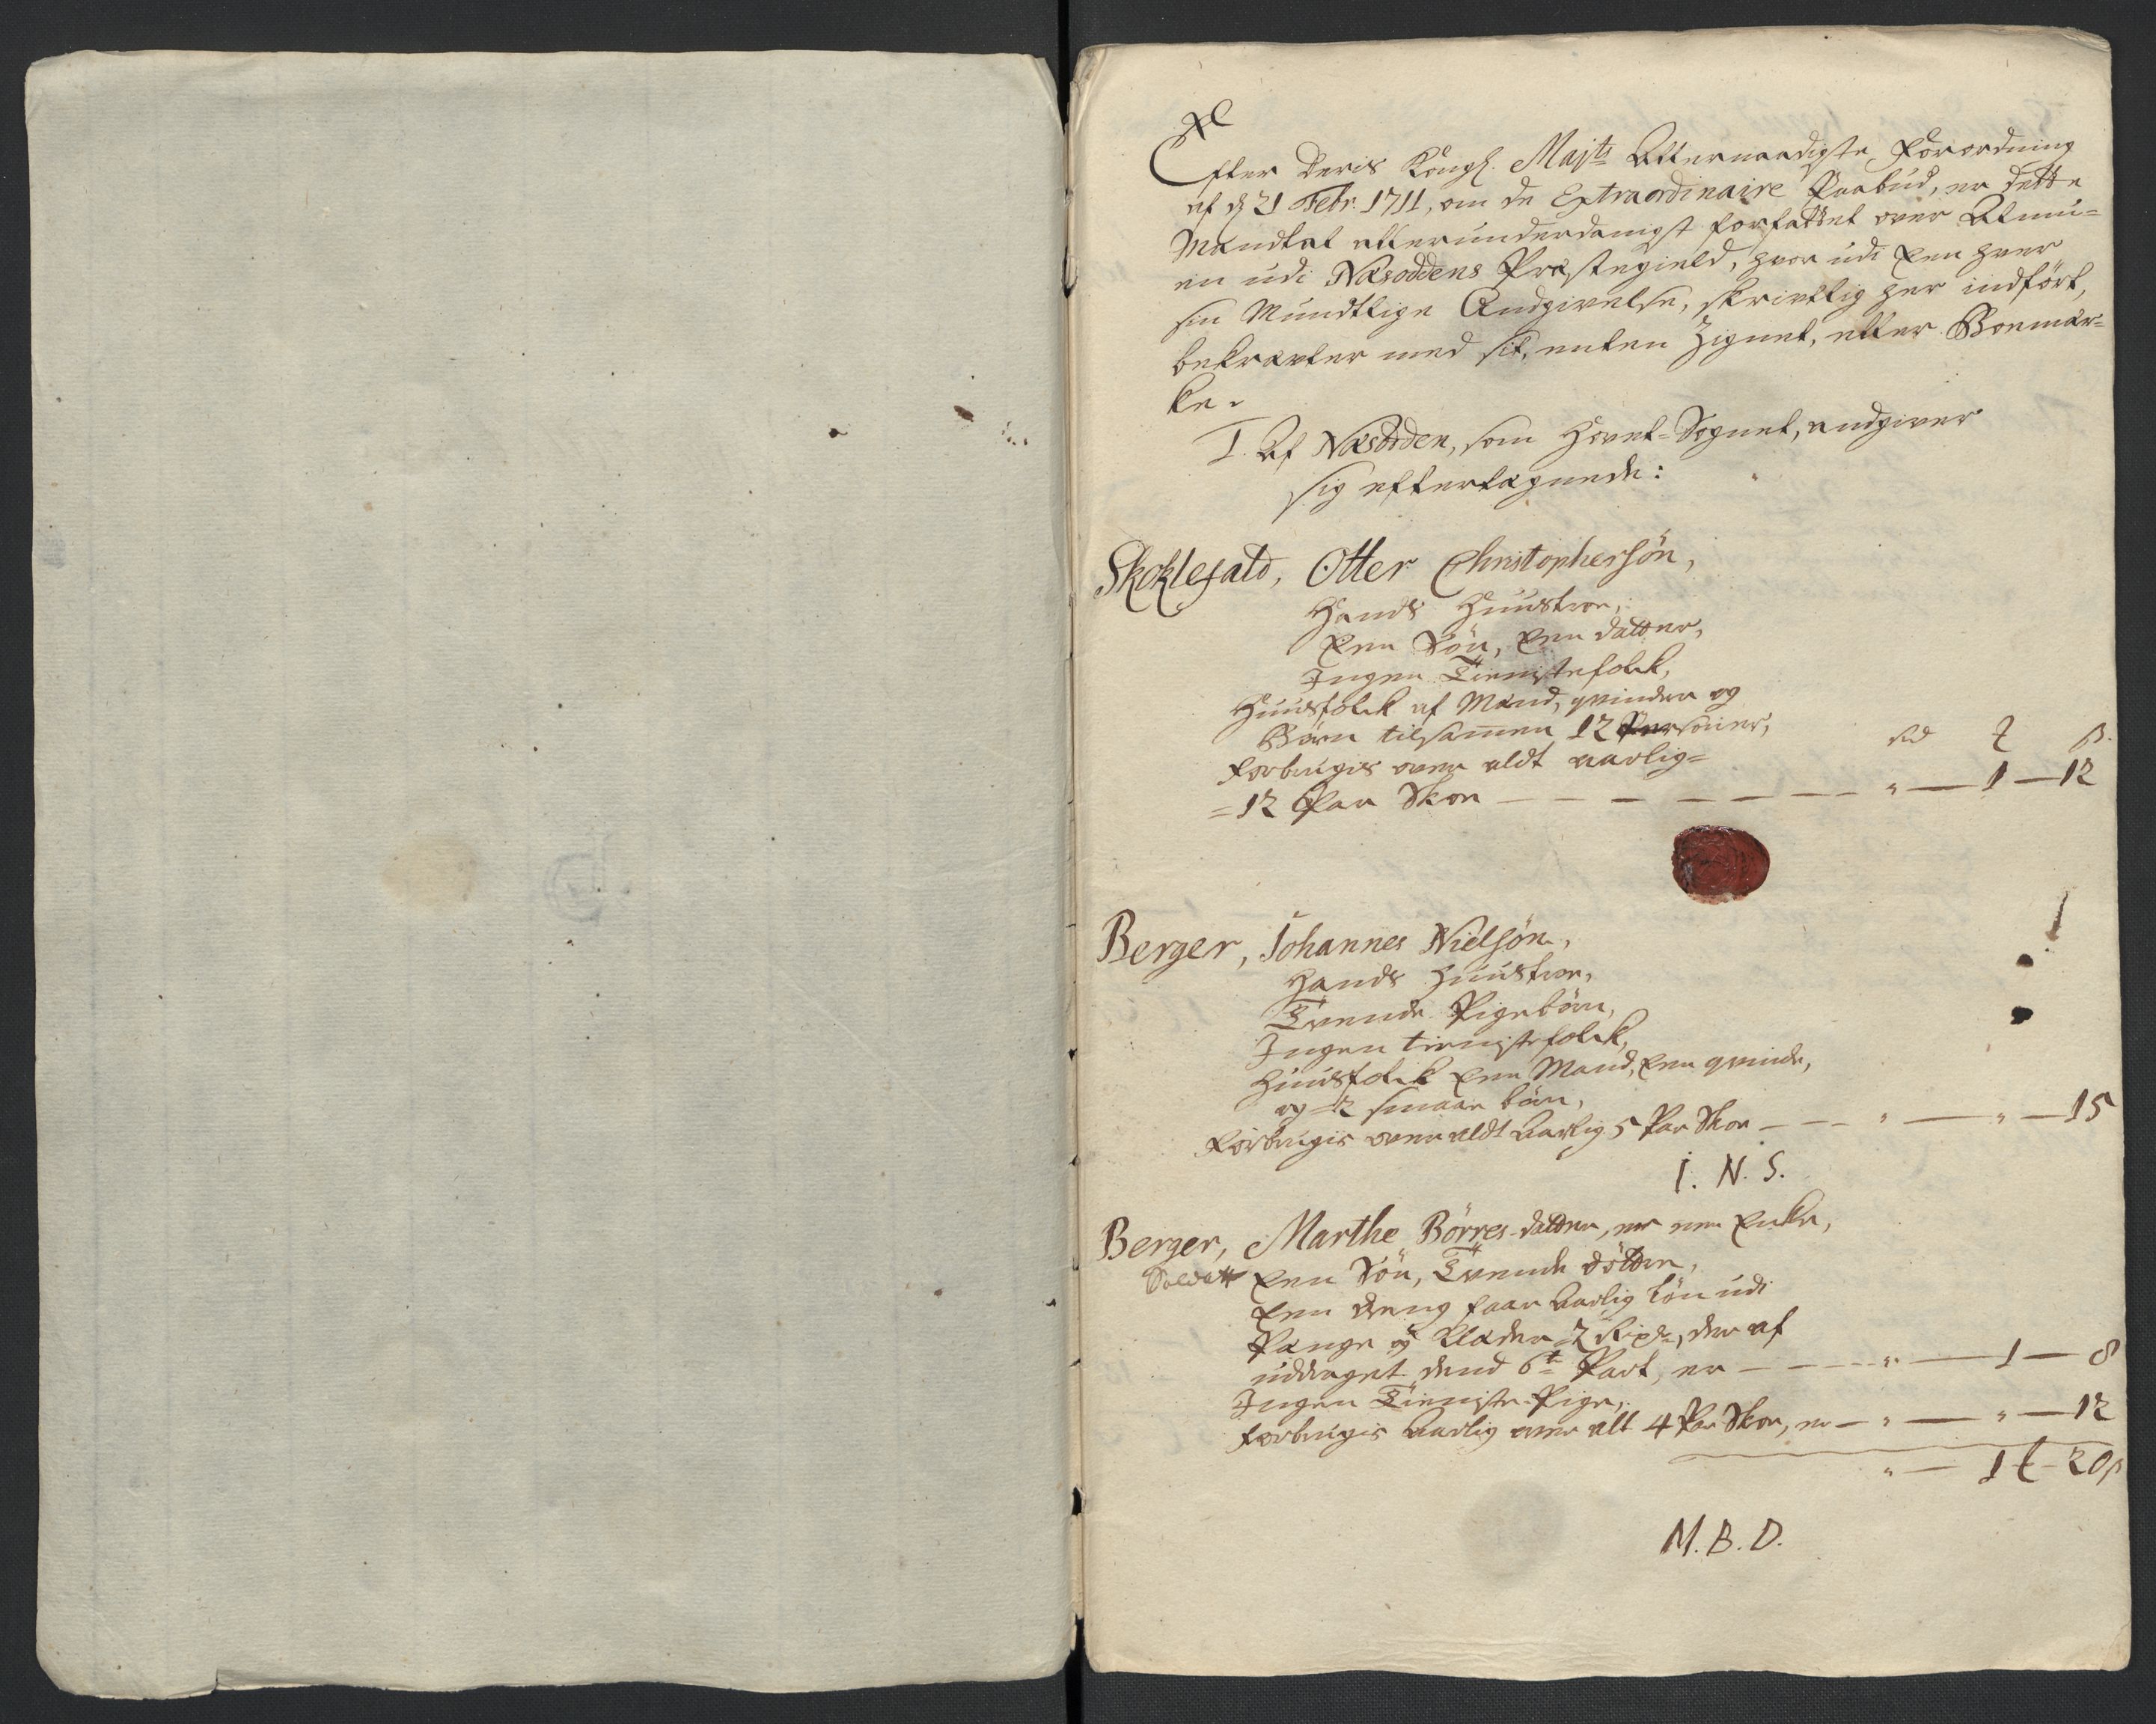 Efter Deris Kongl. Majts Allernaadigste Forordning
af d 21 Febr. 1711, om de Extraordinaire Paabud, er dette
Mandtal allerunderdanigst forfattet over Almu=
en udi Næsoddens Præstegield, hvor udi Een hver
sin Mundtlige Andgivelse, skrivtlig her indfört,
bekræfter med sit, enten Zignet, eller Boemær=
ke.
I. Af Næsodden, som Hovet=Sognet, andgiver
sig eftertegnede:
Skoklefald, Otter Christophersön,
Hands Huustroe,
Een Sön, Een datter,
Ingen Tienistefolck,
Huusfolck af Mand, qvinder og
Börn tilsamen 12 Personer,
Forbrugis over aldt aarlig=
=12 Par Skoe — — — — — — " — 1 — 12
Berger, Johannes Nielsön,
Hands Huustroe,
Tvende Pigebörn,
Ingen tienistefolck,
Huusfolck Een Mand, Een qvinde,
og 2 smaae börn,
Forbrugis over aldt Aarlig 5 Par Skoe — — — " — " — 15
I. N. S.
Berger, Marthe Börres datter, er een Enke,
Soldat Een Sön, Tvende döttre,
Een dreng faar Aarlig Lön udi
Penge og Klæder 2 Rixdr, der af
uddraget dend 6te Part, er — — — " — 1 — 8
Ingen Tieniste Pige,
Forbrugis Aarlig over alt 4 Par Skoe, er — " — " — 12
" — 1 — 20
M. B. D.